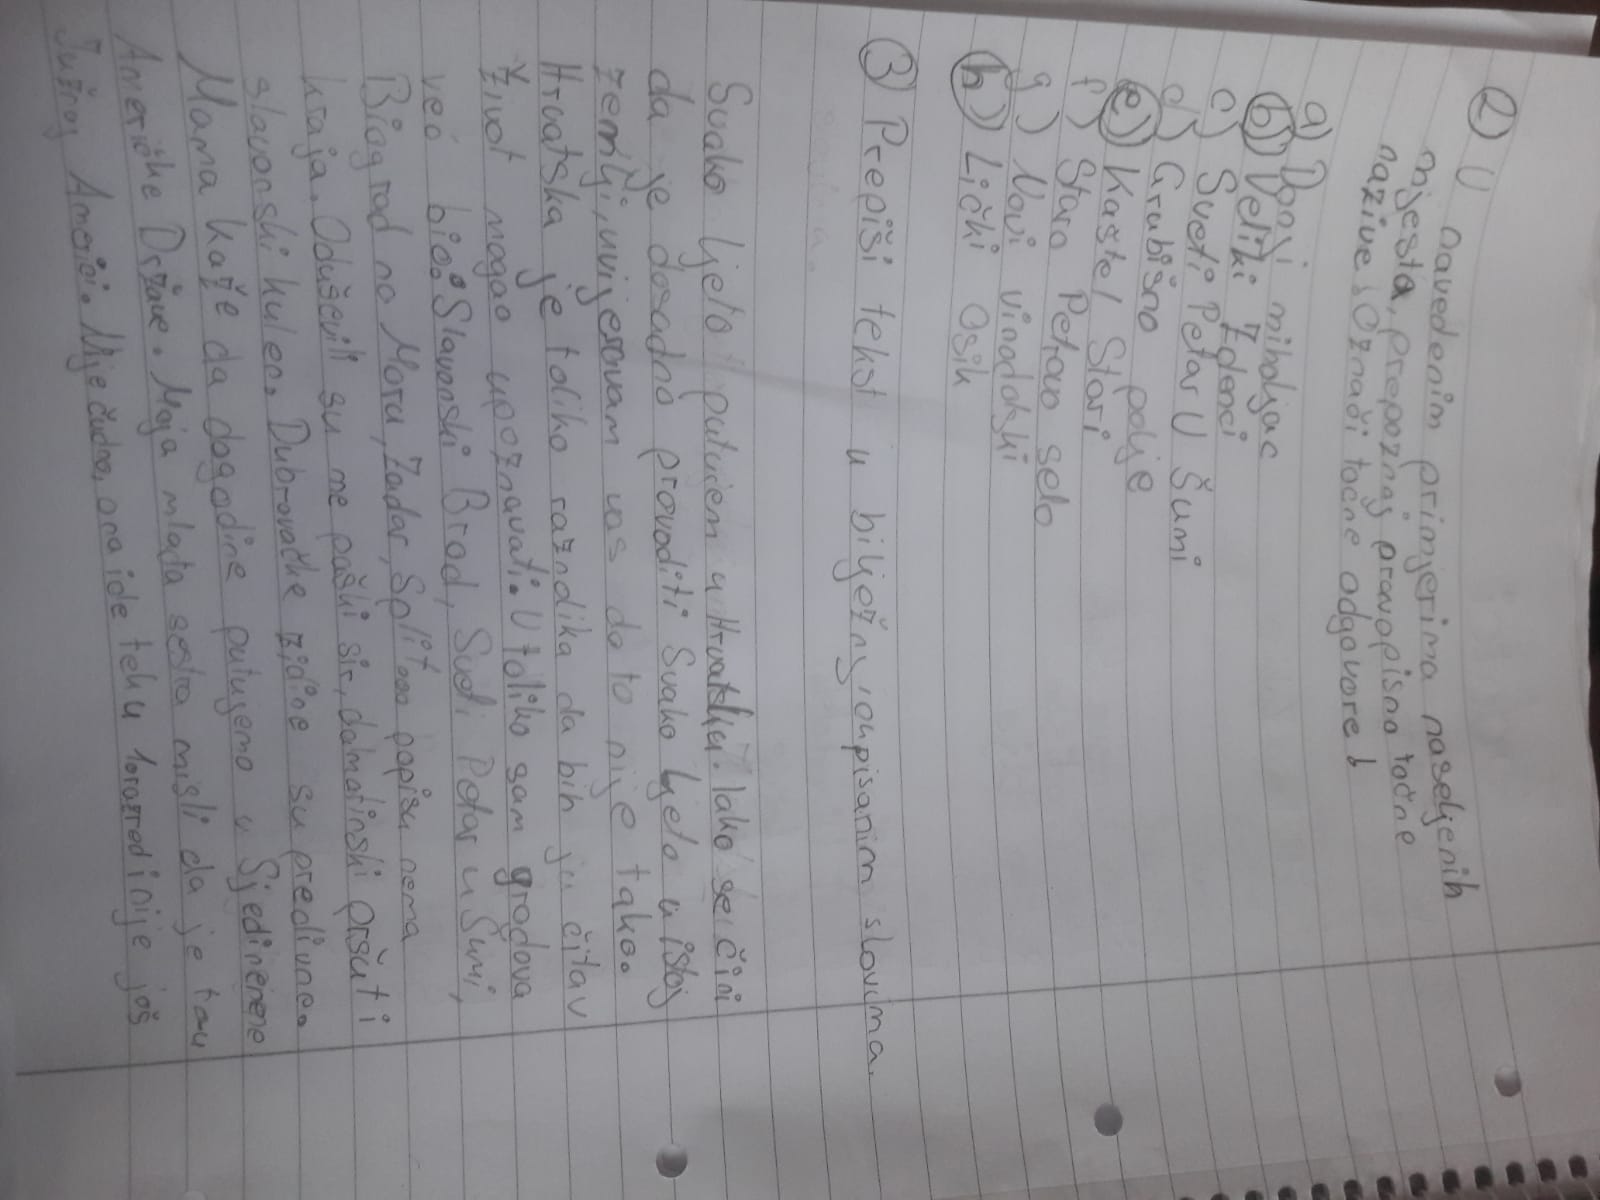 ② U navedenim primjerima naseljenih
mjesta, prepoznaj pravopisno točne
nazive. Označi točne odgovore b
a) Donji miholjac
b) Veliki Zdenci
c) Sveti Petar U Šumi
d) Grubišno polje
e) Kaštel Stari
f) Staro Petrovo selo
g) Novi vinodolski
h) Lički Osik
③ Prepiši tekst u bilježnicu pisanim slovima.
Svako ljeto putujem u Hrvatsku. Iako se čini
da je dosadno provoditi Svako ljeto u istoj
zemlji, uvjeravam vas da to nije tako.
Hrvatska je toliko raznolika da bih ju čitav
život mogao upoznavati. U toliko sam gradova
već bio: Slavonski Brod, Sveti Petar u Šumi,
Biograd na Moru, Zadar, Split popisu nema
kraja. Oduševili su me paški sir, dalmatinski pršut i
slavonski kulen. Dubrovačke zidine su predivne.
Mama kaže da dogodine putujemo u Sjedinjene
Američke Države. Moja mlađa sestra misli da je to u
Južnoj Americi. Nije čudno, ona ide tek u 1. razred i nije još